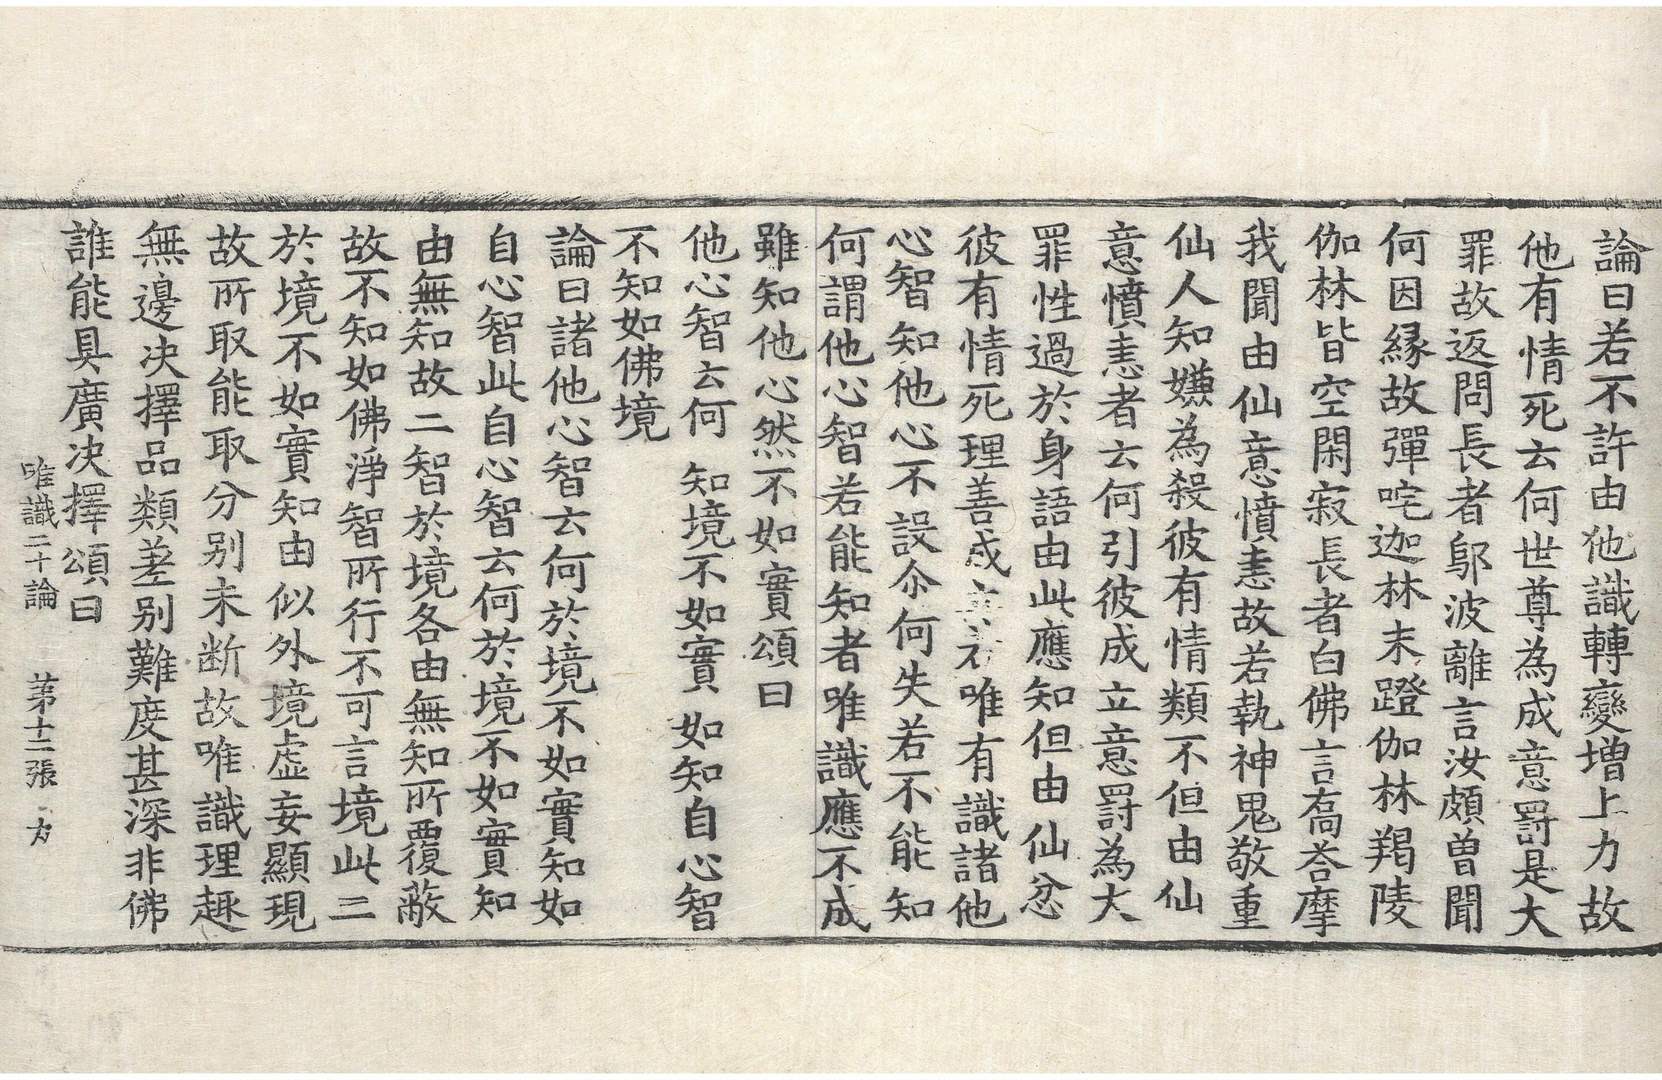 論曰若不許由他識轉變增上力故
他有情死云何世尊為成意罸是大
罪故返問長者鄔波離言汝頗曾聞
何因緣故彈咤迦林末蹬伽林羯陵
伽林皆空閑寂長者白佛言喬荅摩
我聞由仙意憤恚故若執神鬼敬重
仙人知嫌為殺彼有情類不但由仙
意憤恚者云何引彼成立意罸為大
罪性過於身語由此應知但由仙忿
彼有情死理善成唯有識諸他
心智知他心不設尒何失若不能知
何謂他心智若能知者唯識應不成
雖知他心然不如實頌曰
他心智云何 知境不如實 如知自心智
不知如佛境
論曰諸他心智云何於境不如實知如
自心智此自心智云何於境不如實知
由無知故二智於境各由無知所覆蔽
故不知如佛淨智所行不可言境此二
於境不如實知由似外境虛妄顯現
故所取能取分別未断故唯識理趣
無邊决擇品類差別難度甚深非佛
誰能具廣决擇頌曰
唯識二十論 苐十二張 力